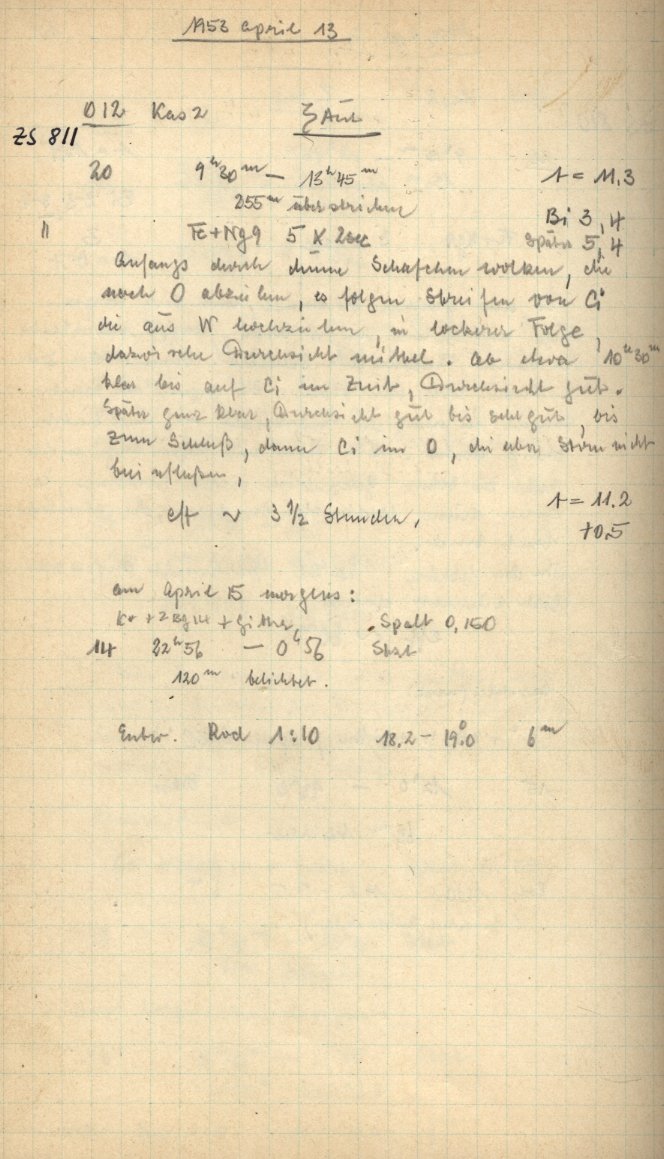 1953 April 13
D12 Kas 2 ζ Aur
ZS 811
20 9ʰ30ᵐ — 13ʰ45ᵐ t = 11.3
255ᵐ überstrichen Bi 3,4
" Fe + Ng 9 5 X 2sec später 5,4
Anfangs durch dünne Schäfchenwolken, die
nach O abziehen, es folgen Streifen von Ci
die aus W hochziehen, in lockerer Folge,
dazwischen Durchsicht mittel. Ab etwa 10ʰ30ᵐ
klar bis auf Ci im Zenit, Durchsicht gut.
Später ganz klar, Durchsicht gut bis sehr gut, bis
zum Schluß, dann Ci im O, die aber Stern nicht
beeinflußen,
eff ~ 3 1/2 Stunden, t = 11.2
+0,5
am April 15 morgens:
+ Gitter, Spalt 0,150
14 22ʰ56 — 0ʰ56
120ᵐ belichtet.
Entw. Rod 1:10 18.2 — 19.0° 6ᵐ